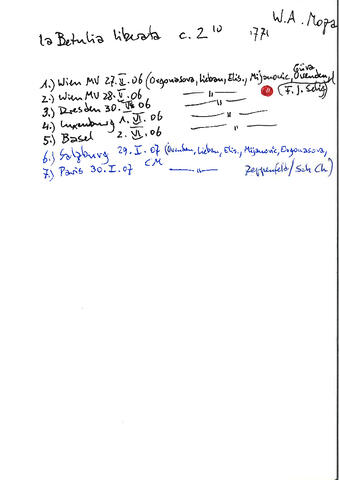 W. A. Moza
la Betulia liberata c. 2 10 1771
1.) Wien MV 27. V. 06 (Orgonasova, Lieban, Elis., Mijanovic, Güra,
2.) Wien MV 28. V. 06 —"— (F. J. Selig)
3.) Dresden 30. V. 06 —"—
4.) Luxemburg 1. VI. 06 —"—
5.) Basel 2. VI. 06 —"—
6.) Salzburg 29. I. 07 (Lieban, Elis., Mijanovic, Orgonasova,
7.) Paris 30. I. 07 CM —"— Zeppenfeld / Sch Ch)